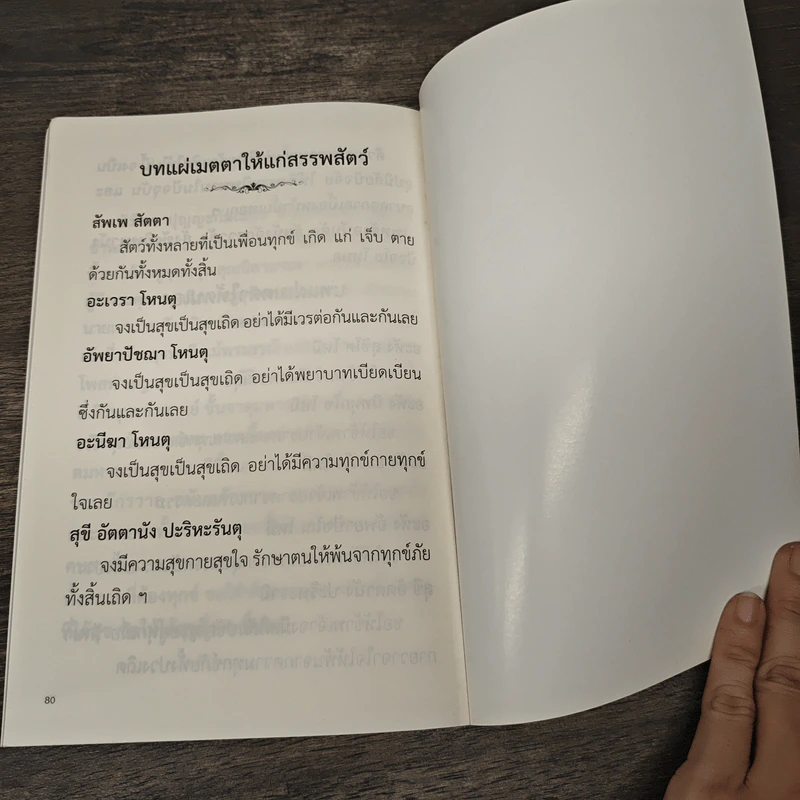 บทแผ่เมตตาให้แก่สรรพสัตว์
สัพเพ สัตตา
สัตว์ทั้งหลายที่เป็นเพื่อนทุกข์ เกิด แก่ เจ็บ ตาย
ด้วยกันทั้งหมดทั้งสิ้น
อะเวรา โหนตุ
จงเป็นสุขเป็นสุขเถิด อย่าได้มีเวรต่อกันและกันเลย
อัพยาปัชฌา โหนตุ
จงเป็นสุขเป็นสุขเถิด อย่าได้พยาบาทเบียดเบียน
ซึ่งกันและกันเลย
อะนีฆา โหนตุ
จงเป็นสุขเป็นสุขเถิด อย่าได้มีความทุกข์กายทุกข์
ใจเลย
สุขี อัตตานัง ปะริหะรันตุ
จงมีความสุขกายสุขใจ รักษาตนให้พ้นจากทุกข์ภัย
ทั้งสิ้นเถิด ฯ
80